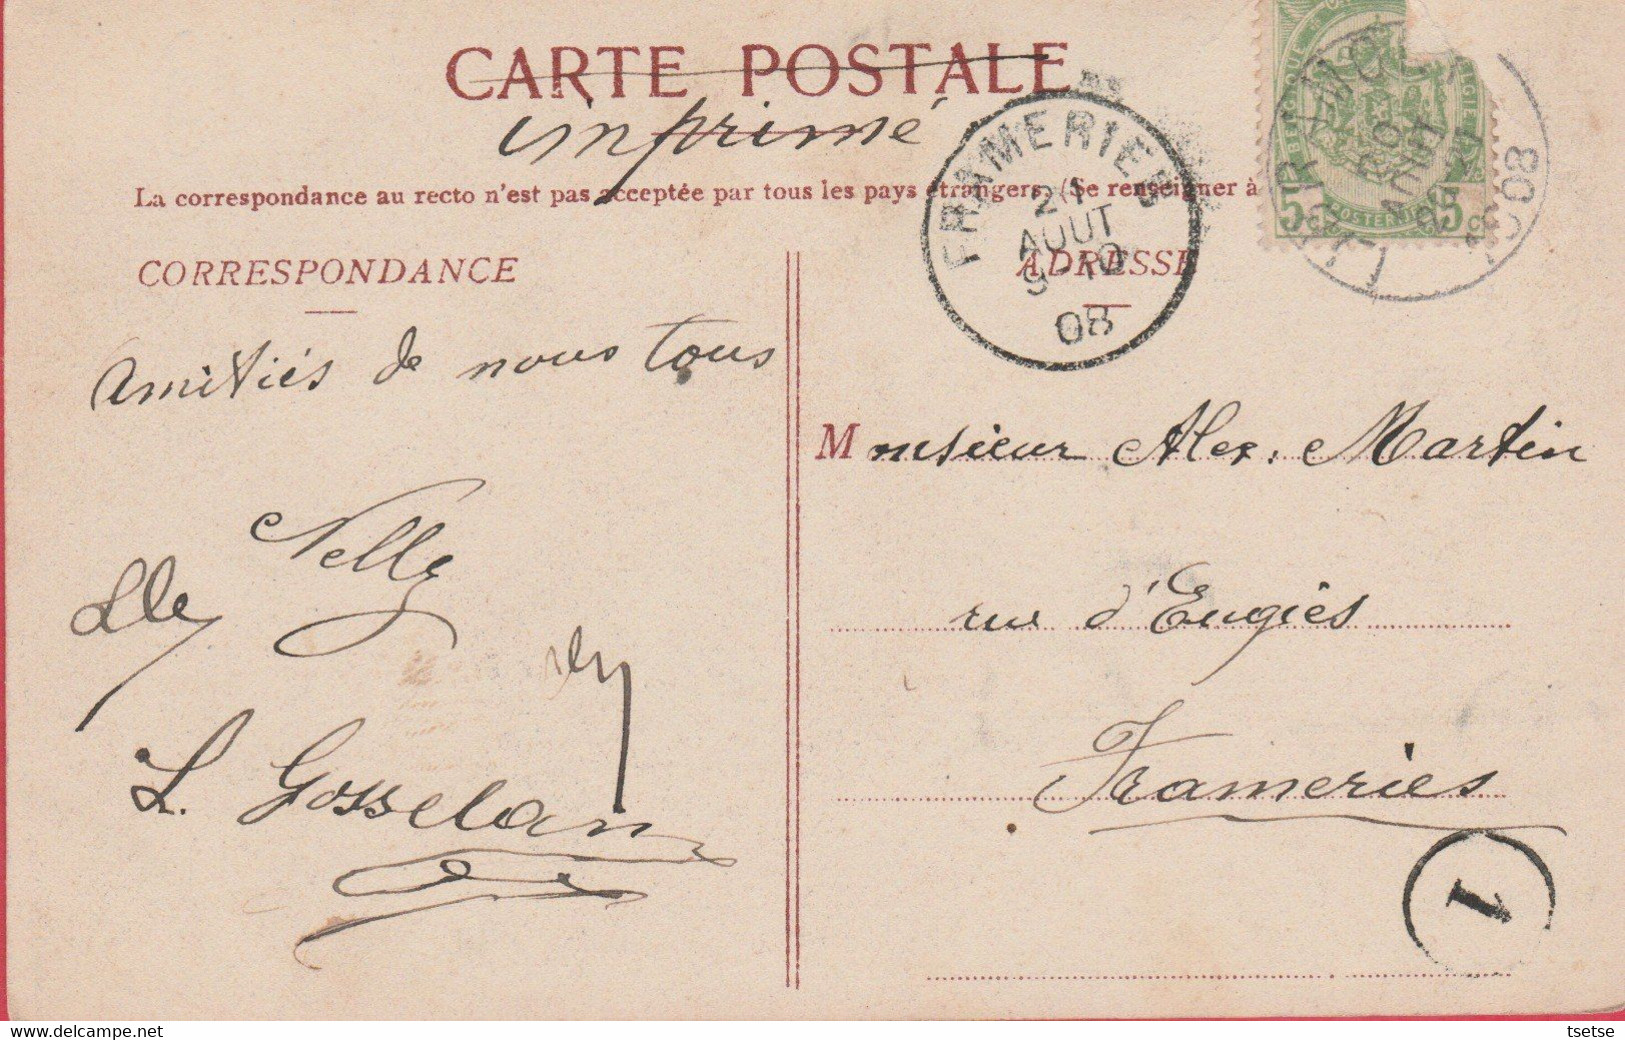 CARTE POSTALE
imprimé
La correspondance au recto n'est pas acceptée par tous les pays étrangers (Se renseigner à
CORRESPONDANCE
ADRESSE
FRAMERIES
21
AOUT
9-10
08
BELGIQUE
BELGIË
5c
POSTERIJEN
5c
20
AOUT
1908
amitiés de nous tous
Nelly
L. Gosselain
Monsieur Alex. Martin
rue d'Eugiès
Frameries
1
www.delcampe.net
tsetse